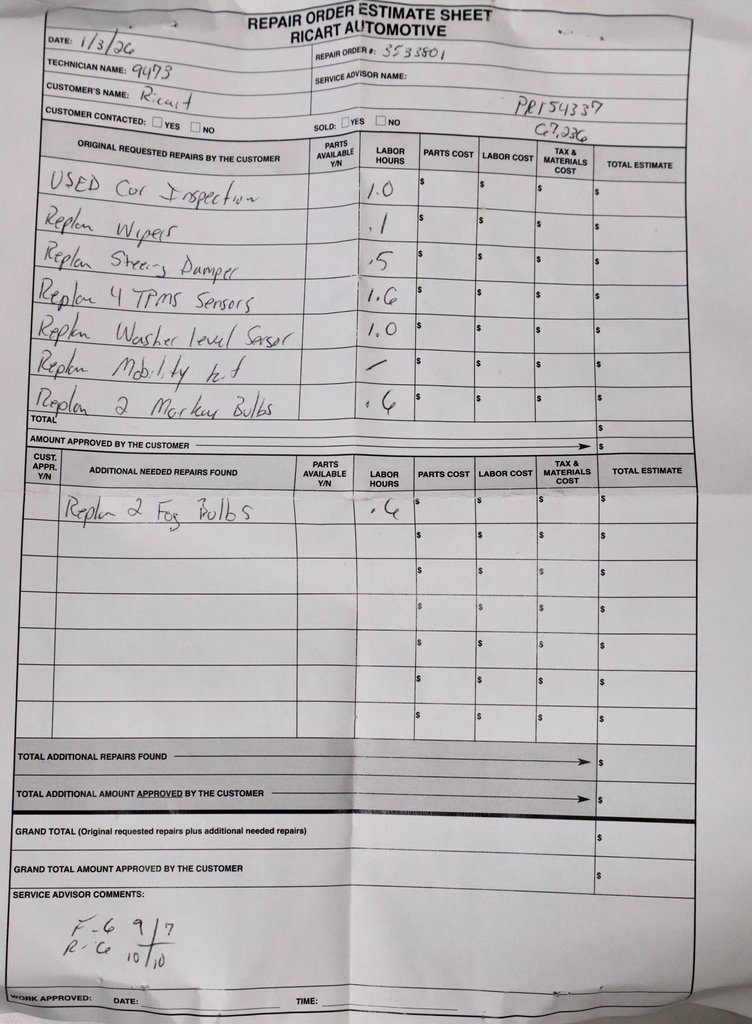 REPAIR ORDER ESTIMATE SHEET
RICART AUTOMOTIVE
DATE: 1/3/26
REPAIR ORDER #: 3533801
TECHNICIAN NAME: 9473
SERVICE ADVISOR NAME:
CUSTOMER'S NAME: Ricart
PR154337
CUSTOMER CONTACTED: YES NO
SOLD: YES NO
67,236
ORIGINAL REQUESTED REPAIRS BY THE CUSTOMER PARTS AVAILABLE Y/N LABOR HOURS PARTS COST LABOR COST TAX & MATERIALS COST TOTAL ESTIMATE
USED Car Inspection 1.0 $ $ $ $
Replace Wipers .1 $ $ $ $
Replace Steering Damper .5 $ $ $ $
Replace 4 TPMS Sensors 1.6 $ $ $ $
Replace Washer level Sensor 1.0 $ $ $ $
Replace Mobility kit / $ $ $ $
Replace 2 Marker Bulbs .6 $ $ $ $
TOTAL $
AMOUNT APPROVED BY THE CUSTOMER $
CUST. APPR. Y/N ADDITIONAL NEEDED REPAIRS FOUND PARTS AVAILABLE Y/N LABOR HOURS PARTS COST LABOR COST TAX & MATERIALS COST TOTAL ESTIMATE
Replace 2 Fog Bulbs .6 $ $ $ $
$ $ $ $
$ $ $ $
$ $ $ $
$ $ $ $
$ $ $ $
$ $ $ $
TOTAL ADDITIONAL REPAIRS FOUND $
TOTAL ADDITIONAL AMOUNT APPROVED BY THE CUSTOMER $
GRAND TOTAL (Original requested repairs plus additional needed repairs) $
GRAND TOTAL AMOUNT APPROVED BY THE CUSTOMER $
SERVICE ADVISOR COMMENTS:
F-6 9/7
R-6 10/10
WORK APPROVED: DATE: TIME: